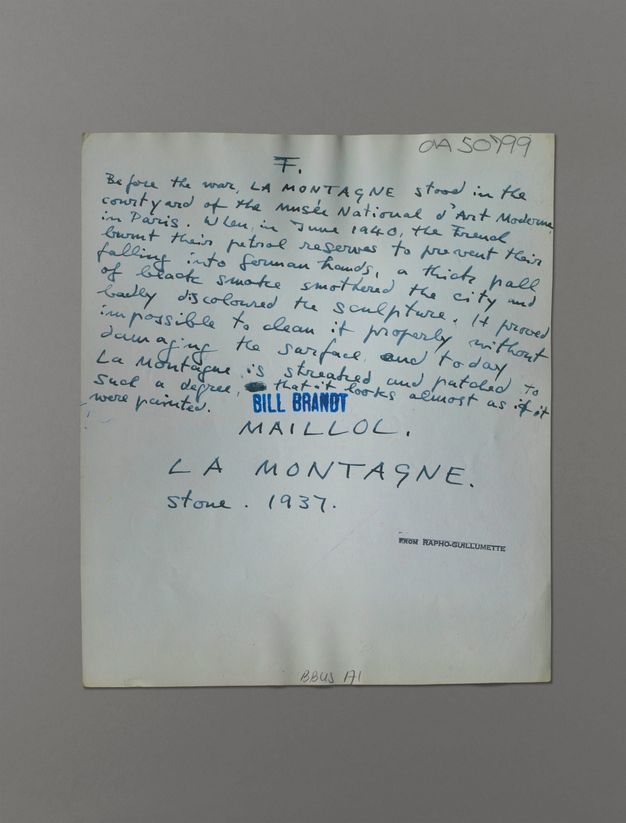 OA 50799
F.
Before the war, LA MONTAGNE stood in the
courtyard of the Musée National d'Art Moderne
in Paris. When, in June 1940, the French
burnt their petrol reserves to prevent their
falling into German hands, a thick pall
of black smoke smothered the city and
badly discoloured the sculpture. It proved
impossible to clean it properly without
damaging the surface and today
La Montagne is streaked and patched to
such a degree, that it looks almost as if it
were painted.
BILL BRANDT
MAILLOL.
LA MONTAGNE.
Stone. 1937.
FROM RAPHO-GUILLUMETTE
BBUS 171